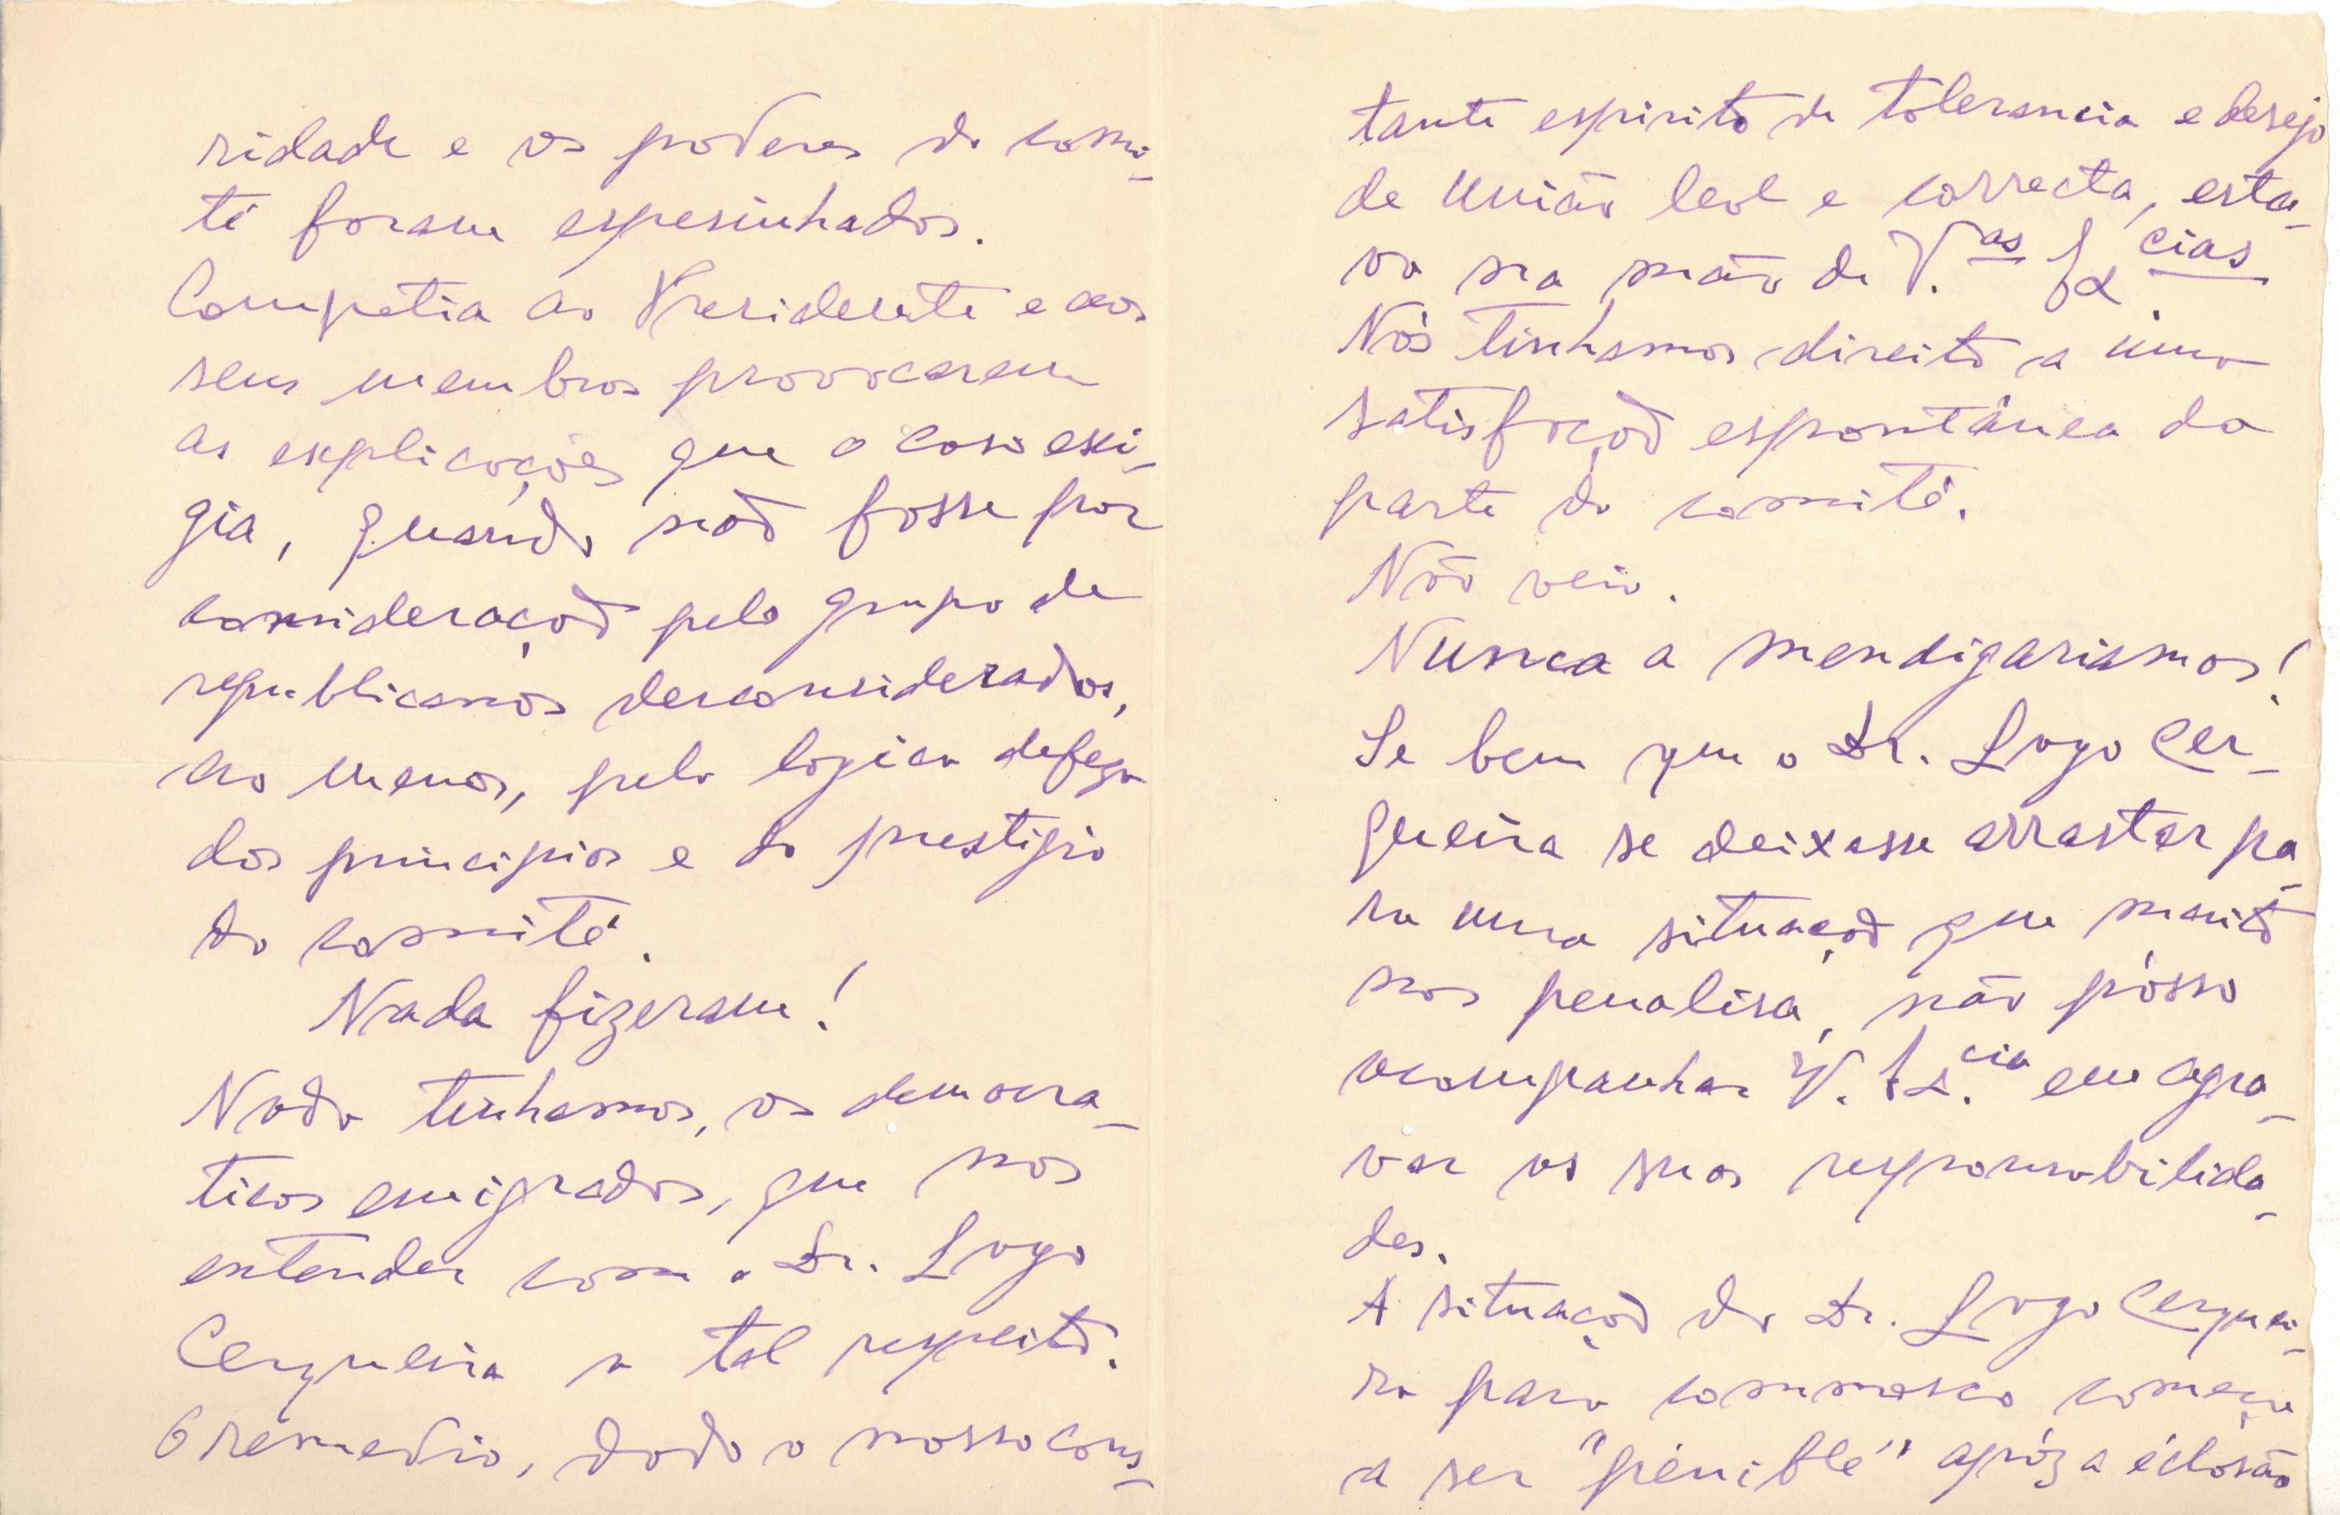 ridade e os poderes do comi-
té foram espesinhados.
Competia ao Presidente e aos
seus membros provocarem
as explicações que o caso exi-
gia, quando não fosse por
consideração pelo grupo de
republicanos desconsiderados,
ao menos, pela logica defeza
dos principios e do prestigio
do comité.
Nada fizeram!
Nada tinhamos, os democra-
ticos emigrados, que nos
entender com o Dr. Lago
Cerqueira a tal respeito.
O remedio, dado o nosso cons-
tante espirito de tolerancia e desejo
de união leal e correcta, esta-
va na mão de V.as Ex.cias
Nós tinhamos direito a uma
satisfação espontânea da
parte do comité.
Não veio.
Nunca a mendigariamos!
Se bem que o Dr. Lago Cer-
queira se deixasse arrastar pa-
ra uma situação que muito
nos penalisa, não pósso
acompanhar V. Ex.cia em agra-
var as suas responsabilida-
des.
A situação do Dr. Lago Cerquei-
ra para comnosco começa
a ser "pénible" após a éclosão